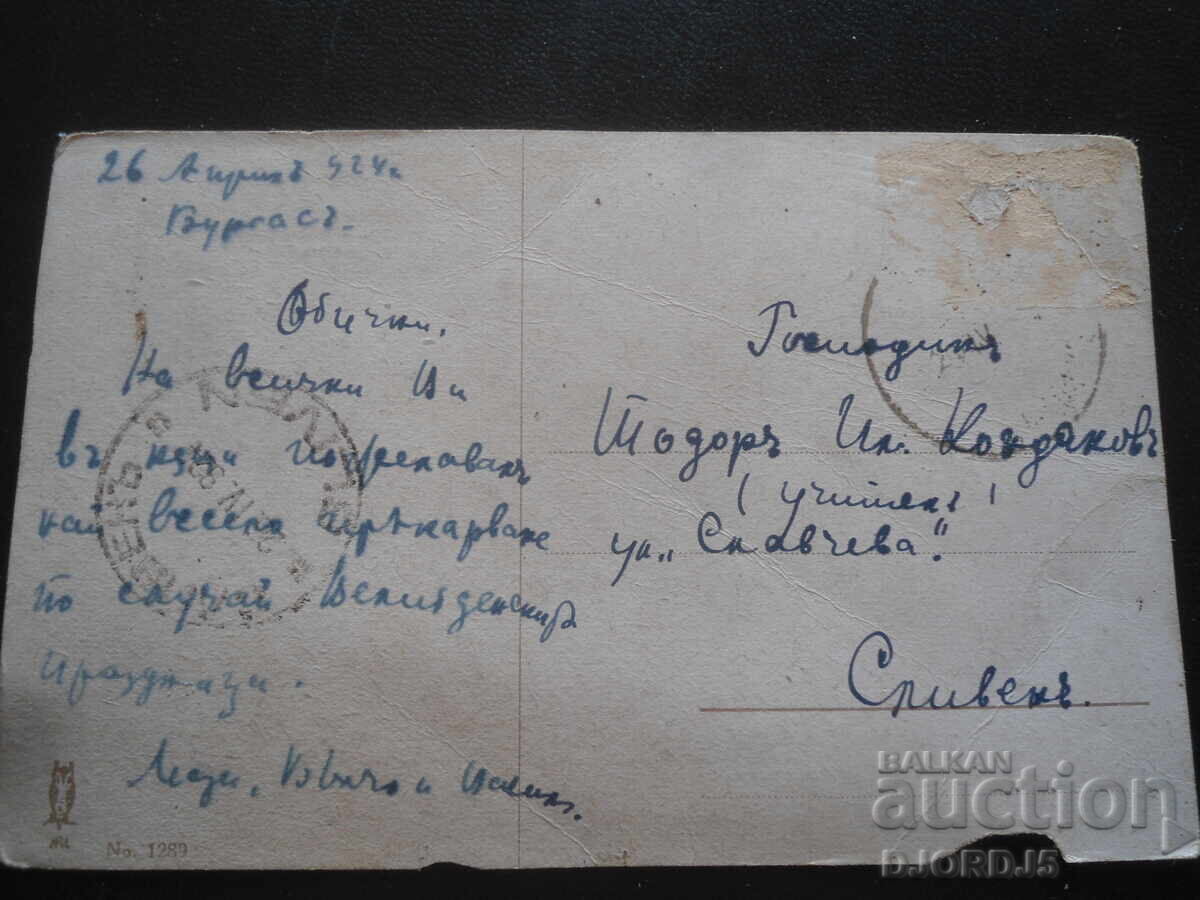 26 Априлъ 924 г.
Бургасъ.
Обични,
На всички Ви
въ къщи
най весело прѣкарване
по случай Великденскитѣ
празници.
и
Господинъ
Тодоръ Ив. Кондаковъ
(учитель)
ул. „Славчева".
Сливенъ.
No. 1289
BALKAN
auction
DJORDJ5